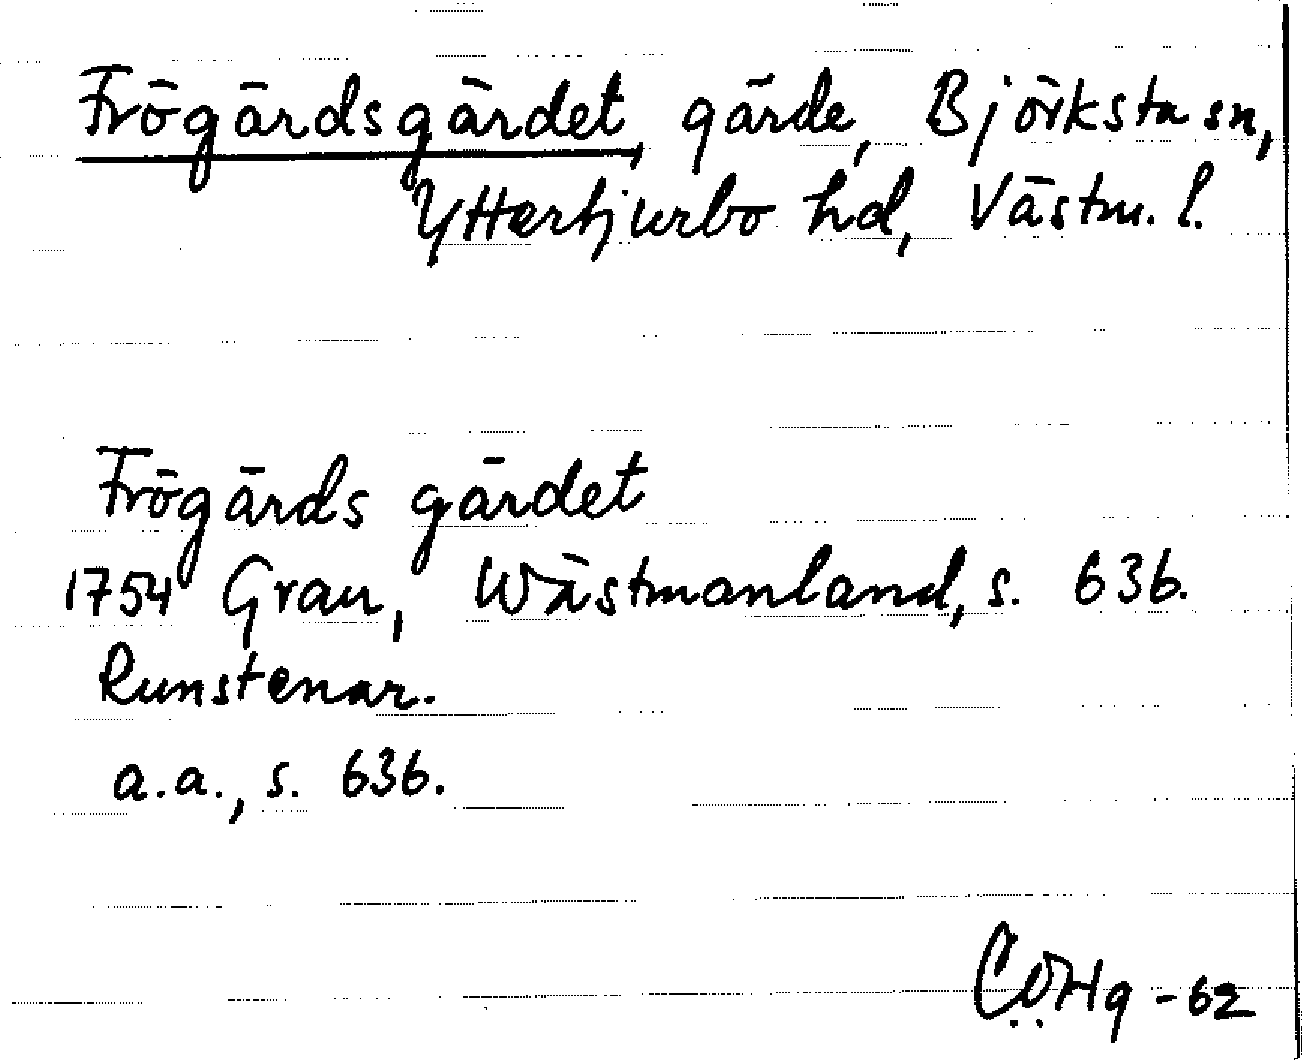 Frögärdsgärdet, gärde, Björksta sn,
Yttertjurbo hd, Västm. l.
Frögärds gärdet
1754 Grau, Wästmanland, s. 636.
Runstenar.
a.a., s. 636.
CÖHg -62